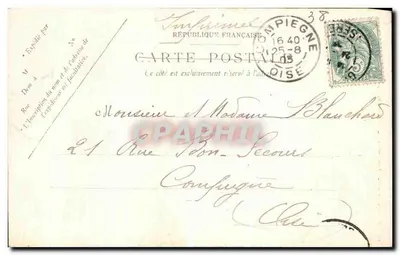 Imprimé
38
RÉPUBLIQUE FRANÇAISE
CARTE POSTALE
Ce côté est exclusivement réservé à l'adresse
Expédié par
M
Dem à
Rue
N°
L'inscription du nom et de l'adresse de
l'expéditeur est facultative.
COMPIEGNE
16 40
25-8
03
OISE
Monsieur et Madame Blanchard
CPAPHIL
21 Rue Bon-Secours
Compiègne
(Oise)